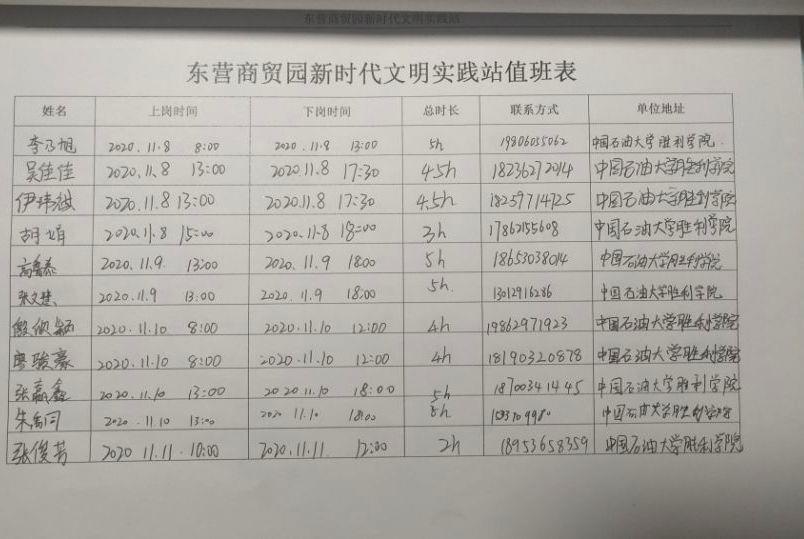 东营商贸园新时代文明实践站
东营商贸园新时代文明实践站值班表
姓名 上岗时间 下岗时间 总时长 联系方式 单位地址
李乃旭 2020.11.8 8:00 2020.11.8 13:00 5h 19806055062 中国石油大学胜利学院.
吴佳佳 2020.11.8 13:00 2020.11.8 17:30 4.5h 18236272014 中国石油大学胜利学院
伊玮祺 2020.11.8 13:00 2020.11.8 17:30 4.5h 18259714725 中国石油大学胜利学院
胡娟 2020.11.8 15:00 2020.11.8 18:00 3h 17862155608 中国石油大学胜利学院
高鑫泰 2020.11.9. 13:00 2020.11.9 18:00 5h 18653038014 中国石油大学胜利学院
张文慧 2020.11.9 13:00 2020.11.9 18:00 5h. 13012916286 中国石油大学胜利学院
2020.11.10 8:00 2020.11.10 12:00 4h 19862971923 中国石油大学胜利学院
2020.11.10 8:00 2020.11.10 12:00 4h 18190320878 中国石油大学胜利学院
张嬴鑫 2020.11.10 13:00 2020.11.10 18:00 5h 18700341445 中国石油大学胜利学院
朱禹同 2020.11.10 13:00 2020 11.10 18:00 5h 中国石油大学胜利学院
张俊芳 2020 11.11. 10:00 2020.11.11. 12:00 2h 18953658359 中国石油大学胜利学院